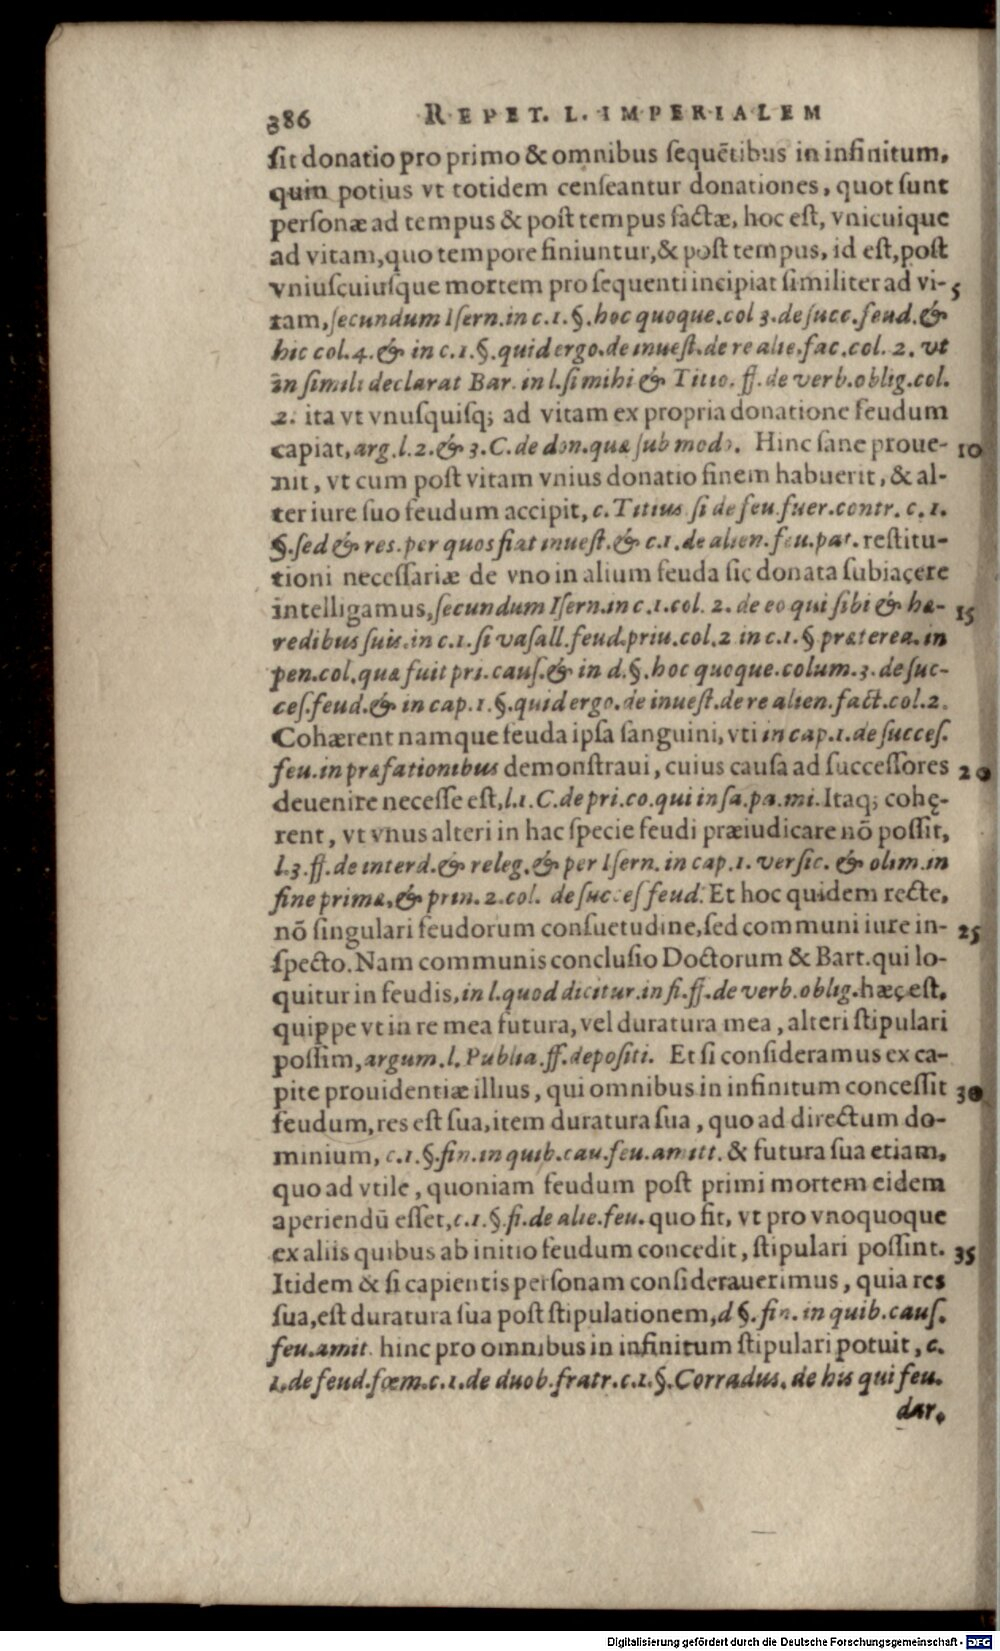 386 REPET. L. IMPERIALEM
ſit donatio pro primo & omnibus ſequẽtibus in infinitum,
quin potius vt totidem cenſeantur donationes, quot ſunt
perſonæ ad tempus & poſt tempus factæ, hoc eſt, vnicuique
ad vitam, quo tempore finiuntur, & poſt tempus, id eſt, poſt
vniuſcuiuſque mortem pro ſequenti incipiat ſimiliter ad vi- 5
tam, ſecundum Iſern. in c. 1. §. hoc quoque. col 3. de ſucc. feud. &
hic col. 4. & in c. 1. §. quid ergo. de inueſt. de re alie. fac. col. 2. vt
in ſimili declarat Bar. in l. ſi mihi & Titio. ff. de verb. oblig. col.
2. ita vt vnuſquiſq; ad vitam ex propria donatione feudum
capiat, arg. l. 2. & 3. C. de don. quæ ſub modo. Hinc ſane proue- 10
nit, vt cum poſt vitam vnius donatio finem habuerit, & al-
ter iure ſuo feudum accipit, c. Titius ſi de feu. fuer. contr. c. 1.
§. ſed & res. per quos fiat inueſt. & c. 1. de alien. feu. pat. reſtitu-
tioni neceſſariæ de vno in alium feuda ſic donata ſubiacere
intelligamus, ſecundum Iſern. in c. 1. col. 2. de eo qui ſibi & hæ- 15
redibus ſuis. in c. 1. ſi vaſall. feud. priu. col. 2 in c. 1. § præterea. in
pen. col. quæ fuit pri. cauſ. & in d. §. hoc quoque. colum. 3. de ſuc-
ceſ. feud. & in cap. 1. §. quid ergo. de inueſt. de re alien. fact. col. 2.
Cohærent namque feuda ipſa ſanguini, vti in cap. 1. de ſucceſ.
feu. in præfationibus demonſtraui, cuius cauſa ad ſucceſſores 20
deuenire neceſſe eſt, l. 1. C. de pri. co. qui in ſa. pa. mi. Itaq; cohę-
rent, vt vnus alteri in hac ſpecie feudi præiudicare nõ poſſit,
l. 3. ff. de interd. & releg. & per Iſern. in cap. 1. verſic. & olim. in
fine primæ, & prin. 2. col. de ſucceſ feud. Et hoc quidem recte,
nõ ſingulari feudorum conſuetudine, ſed communi iure in- 25
ſpecto. Nam communis concluſio Doctorum & Bart. qui lo-
quitur in feudis, in l. quod dicitur. in fi. ff. de verb. oblig. hæc eſt,
quippe vt in re mea futura, vel duratura mea, alteri ſtipulari
poſſim, argum. l. Publia. ff. depoſiti. Et ſi conſideramus ex ca-
pite prouidentiæ illius, qui omnibus in infinitum conceſſit 30
feudum, res eſt ſua, item duratura ſua, quo ad directum do-
minium, c. 1. §. fin. in quib. cau. feu. amitt. & futura ſua etiam,
quo ad vtile, quoniam feudum poſt primi mortem eidem
aperiendũ eſſet, c. 1. §. fi. de alie. feu. quo fit, vt pro vnoquoque
ex aliis quibus ab initio feudum concedit, ſtipulari poſſint. 35
Itidem & ſi capientis perſonam conſiderauerimus, quia res
ſua, eſt duratura ſua poſt ſtipulationem, d §. fin. in quib. cauſ.
feu. amit. hinc pro omnibus in infinitum ſtipulari potuit, c.
1. de feud. fœm. c. 1. de duob. fratr. c. 1. §. Corradus. de his qui feu.
dar.
Digitalisierung gefördert durch die Deutsche Forschungsgemeinschaft - DFG